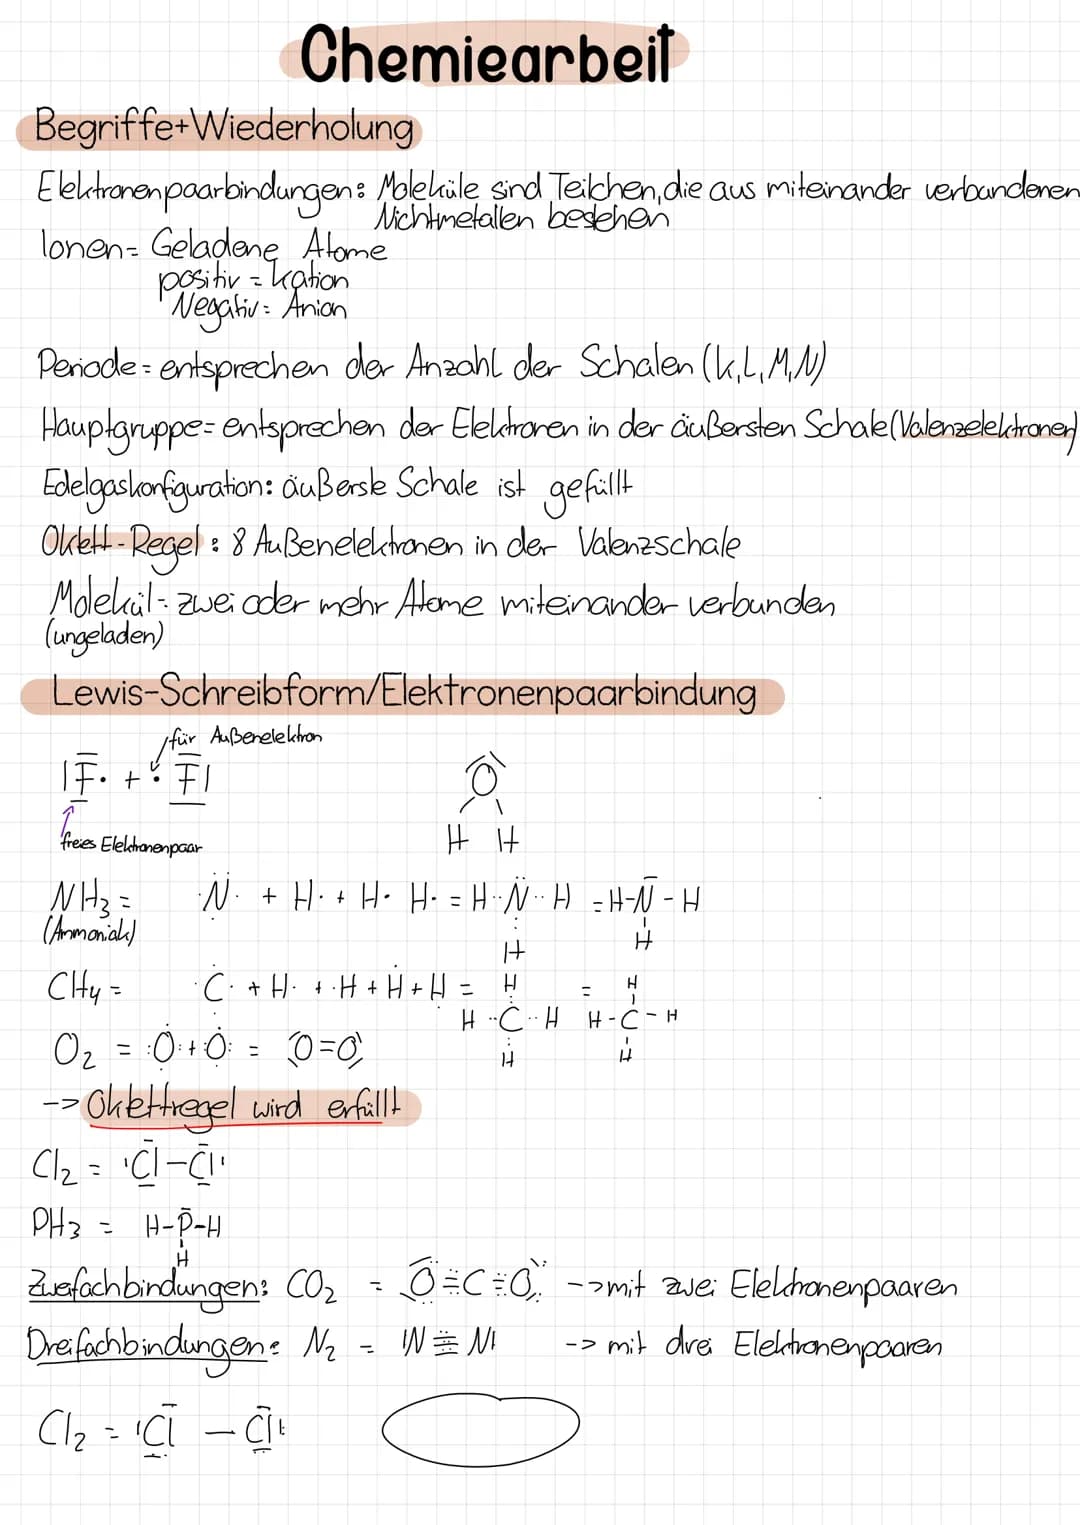 Chemiearbeit
Begriffe+Wiederholung
Elektronenpaarbindungen: Moleküle sind Teilchen, die aus miteinander verbundenen
Nichtmetallen bestehen
Ionen= Geladene Atome
positiv = kation
Negativ= Anion
Periode= entsprechen der Anzahl der Schalen (K,L,M,N)
Hauptgruppe= entsprechen der Elektronen in der äußersten Schale (Valenzelektronen)
Edelgaskonfiguration: äußerste Schale ist gefüllt
Oktett-Regel: 8 Außenelektronen in der Valenzschale
Molekül- zwei oder mehr Atome miteinander verbunden
(ungeladen)
Lewis-Schreibform/Elektronenpaarbindung
für Außenelektron
|F· + · F|
freies Elektronenpaar
O
H H
NH₃ = ·N· + H· + H· H· = H··N··H = H-N-H
(Ammoniak) H H
CH₄ = ·C· + H· + ·H + H + H = H = H
H··C··H H-C-H
H H
O₂ = :O: + O: = O=O
-> Oktettregel wird erfüllt
Cl₂ = |Cl-Cl|
PH₃ = H-P-H
H
Zweifachbindungen: CO₂ = O=C=O -> mit zwei Elektronenpaaren
Dreifachbindungen: N₂ = |N≡N| -> mit drei Elektronenpaaren
Cl₂ = |Cl - Cl|